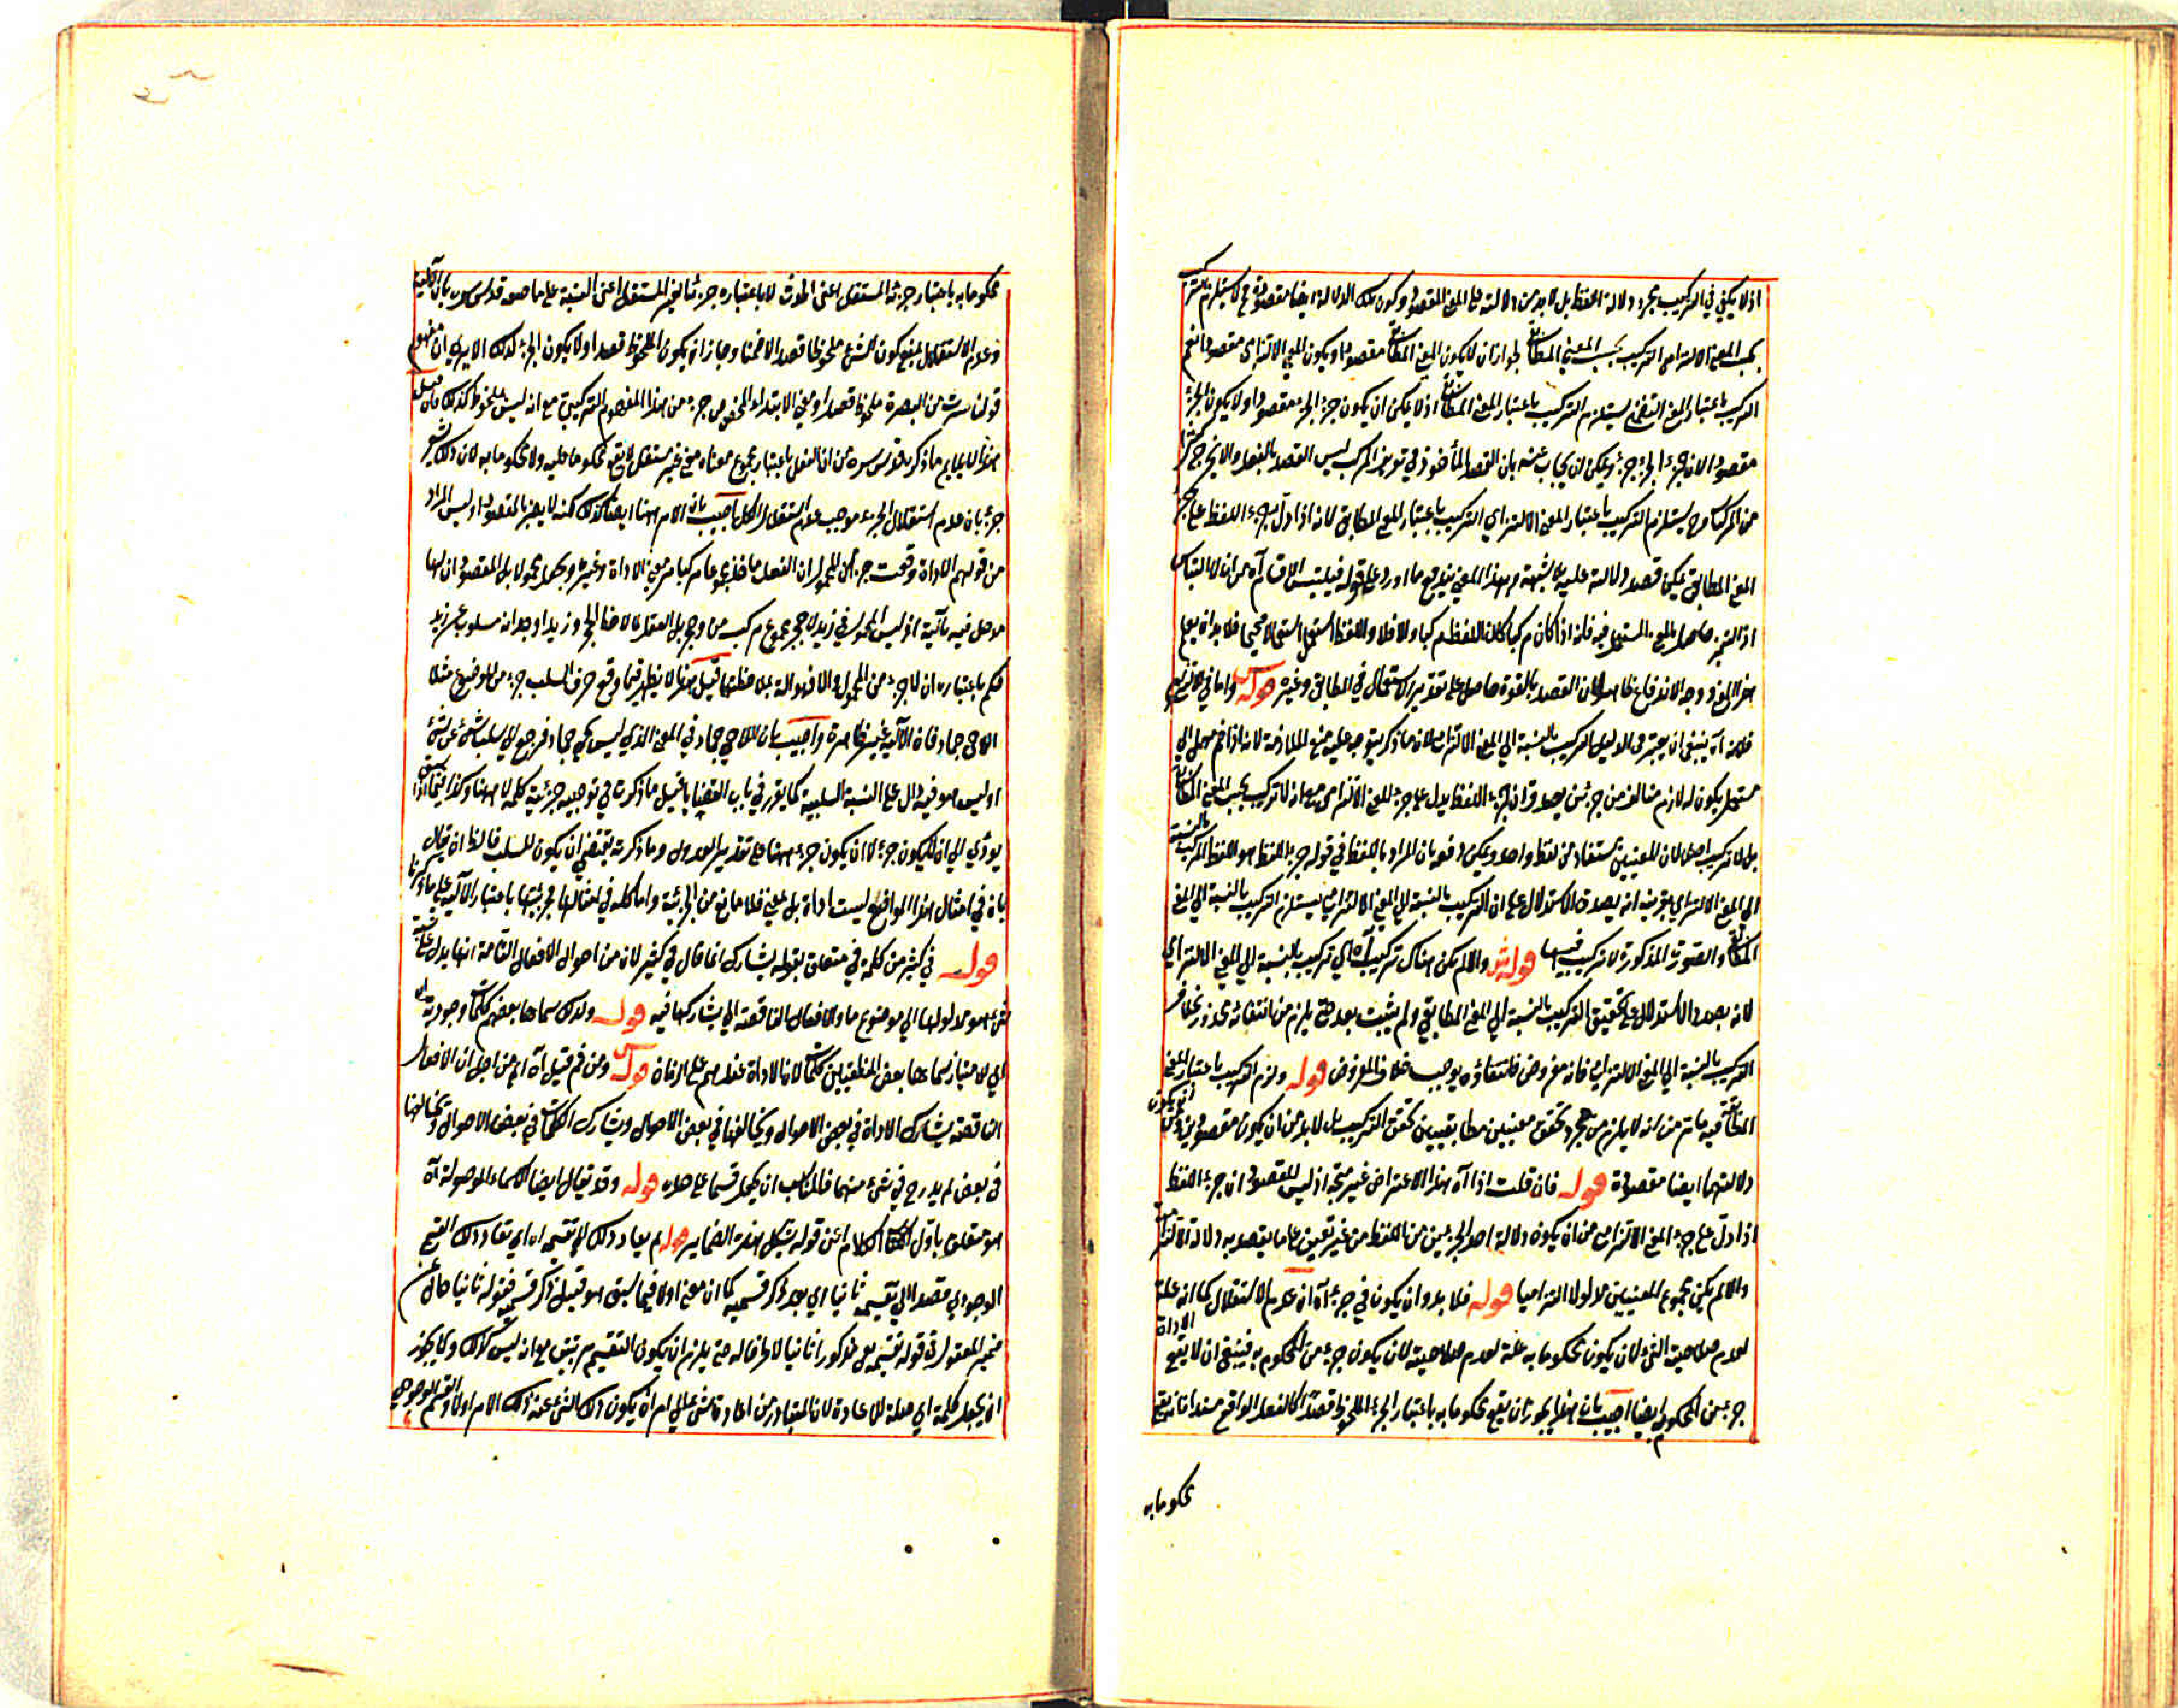 اذ لا يكفي في التركيب مجرد دلالة اللفظ بل لا بد من دلالته على المعنى المقصود وكون تلك الدلالة ايضا مقصودة
بحسب المعنى الالتزامي التركيب بحسب المعنى المطابقي لجواز ان لا يكون المعنى المطابقي مقصودا ويكون المعنى الالتزامي مقصودا نعم
التركيب باعتبار المعنى التضمني يستلزم التركيب باعتبار المعنى المطابقي اذ لا يمكن ان يكون جزء الجزء مقصودا ولا يكون الجزء
مقصودا لان جزء الجزء جزء ويمكن ان يجاب عنه بان القصد المأخوذ في تعريف المركب ليس القصد بالفعل والا لخرج
من المركب وح يستلزم التركيب باعتبار المعنى الالتزامي التركيب باعتبار المعنى المطابقي لانه اذا دل جزء اللفظ على جزء
المعنى المطابقي يمكن قصد دلالته عليه بلا شبهة وبهذا المعنى يندفع ما اورد على قوله فيلتبس الاقسام آه من ان الالتباس
اذ التميز حاصل بالمعنى المستعمل فيه فانه اذا كان مركبا كان اللفظ مركبا والا فلا واللفظ استعمل استعمالا صحيحا فلا بد ان يعلم
هذا المعنى ووجه الاندفاع ظاهر لان القصد بالقوة حاصل على تقدير الاستعمال في المطابقي وغيره قوله واما في
فلانه آه ينبغي ان يعتبر في الدليل التركيب بالنسبة الى المعنى الالتزامي لان ما ذكر يتوجه عليه منع الملازمة لانه اذا ضم مهمل الى
مستعمل يكون له لازم متالف من جزئين يصدق ان جزء اللفظ يدل على جزء المعنى الالتزامي مع ان لا تركيب بحسب المعنى المطابقي
بل لا تركيب اصلا لان المعنيين مستفاد من لفظ واحد ويمكن دفعه بان المراد باللفظ في قوله جزء اللفظ هو اللفظ المركب بالنسبة
الى المعنى الالتزامي بقرينة انه بصدد الاستدلال على ان التركيب بالنسبة الى المعنى الالتزامي يستلزم التركيب بالنسبة الى المعنى
المطابقي والصورة المذكورة لا تركيب فيها قوله والا لم يكن هناك تركيب آه اي تركيب بالنسبة الى المعنى الالتزامي
لانه بصدد الاستدلال على تحقيق التركيب بالنسبة الى المعنى المطابقي ولم يثبت بعد حتى يلزم من انتفائه محذور بخلاف
التركيب بالنسبة الى المعنى الالتزامي فانه مفروض فانتفاؤه يوجب خلاف المفروض قوله ولزم التركيب باعتبار المعنى
المطابقي فيه ما تر من انه لا يلزم من مجرد تحقق معنيين مطابقيين تحقق التركيب بل لا بد من ان يكون مقصودين
دلالتهما ايضا مقصودة قوله فان قلت اذا آه هذا الاعتراض غير متجه اذ ليس المقصود ان جزء اللفظ
اذا دل على جزء المعنى الالتزامي من ان يكون دلالة احد الجزئين من اللفظ من غير تعيين على ما يقصد به دلالة الالتزام
والا لم يكن مجموع المعنيين مدلولا التزاميا قوله فلا بد وان يكون في جزء آه ان عدم الاستقلال كما انه علة
لعدم صلاحية الشيء لان يكون محكوما به علة لعدم صلاحيته لان يكون جزء من المحكوم به فينبغي ان لا يقع الاداة
جزء من المحكوم به ايضا اجيب بان هذا يجوز ان يقع محكوما به باعتبار الجزء الملحوظ قصدا كالفعل الواقع مسندا فانه يقع
محكوما به
محكوما به باعتبار جزئه المستقل اعني الحدث لا باعتبار جزئه الغير المستقل اعني النسبة على ما صرح قدس سره بان
وعدم الاستقلال يمنع كون الشيء ملحوظا قصدا لا ضمنا وجاز ان يكون الملحوظ قصدا ولا يكون الجزء كذلك الا يرى ان مفهوم
قولنا سرت من البصرة ملحوظ قصدا ومعنى الابتداء المخصوص جزء من هذا المفهوم التركيبي مع انه ليس ملحوظ كذلك فان قيل
هذا لا يلايم ما ذكره قدس سره من ان الفعل باعتبار مجموع معناه معنى غير مستقل لا يقع محكوما عليه ولا محكوما به لان ذلك يشعر
جزء بان عدم استقلال الجزء موجب عدم استقلال الكل اجيب بان الامر ههنا ايضا كذلك لكنه لا يضر بالمقصود اذ ليس المراد
من قولهم الاداة وقعت جزء من المحمول ان الفعل ماخذ مجموعا مركبا من معنى الاداة وغيره وجعل محمولا بل المقصود ان لها
مدخل فيه بآلية اذ ليس المحمول في زيد لا حجر مجموع مركب من لا وحجر بل العقل لاحظ الحجر وزيدا وجدانه مسلوب عن زيد
فحكم باعتباره ان لا جزء من المحمول والا فهو آلة بملاحظتها قيل هذا لا يظهر فيما وقع حرف السلب جزء من الموضوع مثلا
اللاحي جماد فان الآلية غير ظاهرة واجيب بان اللاحي جماد في المعنى الذي ليس بحي جماد فرجع الى سلب شيء عن شيء
او ليس هو فيه دال على النسبة السلبية كما يقرر في باب القضايا قيل ما ذكرت في توجيه جزئية كلمة لا ههنا وكذا فيما
يؤدي الى ان لا يكون جزء لا ان يكون جزء ههنا على تقدير العدول وما ذكرته يقتضي ان يكون للسلب فالظاهر ان يقال
بان في امثال هذا المواقع ليست اداة بل بمعنى فلا مانع من الجزئية واما كلمة في امثالها فجزئيتها باعتبار الآلية على ما ذكرنا
قوله في كثير من كلمة في متعلق بقوله يشارك انما قال في كثير لان من احوال الافعال التامة انها يدل على نسبة
شيء هو مدلولها الى موضوع ما والافعال الناقصة لا يشاركها فيه قوله ولذلك سماها بعضهم كلمات وجودية
اي لامتيازها سماها بعض المنطقيين كلمات لان الاداة عندهم على الزمان قوله ومن ثم قيل آه اي من اجل ان الافعال
الناقصة يشارك الاداة في بعض الاحوال ويخالفها في بعض الاحوال ويشارك الكلمات في بعض الاحوال ويخالفها
في بعض لم يدرج في شيء منهما فالمناسب ان يجعل قسما على حده قوله وقد يقال ايضا الاسماء الموصولة آه
هو متعلق باول الكلام اعني قوله يشكل هذه الضماير قوله لم يعاد ذلك الى تقسيمه آه اي تعاد ذلك القسم
الوجودي مقصدا الى تقسيمه ثانيا اي بعد ذكر قسميه كما ان معنى اولا فيما سبق هو قبل ذكر قسميه فقوله ثانيا حال عن
ضمير المفعول في قوله تقسيمه بمعنى مذكورا ثانيا لا ظرفا له حتى يلزم ان يكون التقسيم مرتين مع انه ليس كذلك ولا يجوز
ان يجعل كلمة اي صلة للاعادة لان المتبادر من اعادة شيء الى امر ان يكون ذلك الشيء عند ذلك الامر اولا والقسم الوجودي